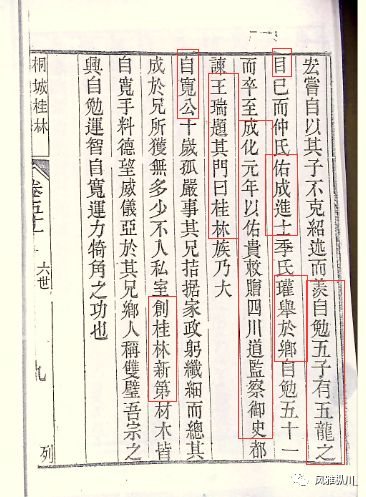 宏嘗自以其子不克紹述而羨自勉五子有五龍之
目已而仲氏佑成進士季氏瓘舉於鄉自勉五十一
而卒至成化元年以佑貴敕贈四川道監察御史都
諫王瑞題其門曰桂林族乃大
自寬公十歲孤嚴事其兄拮据家政躬纖細而總其
成於兄所獲無多少不入私室創桂林新第材木皆
自寬手料德望威儀亞於其兄鄉人稱雙璧吾宗之
興自勉運智自寬運力犄角之功也
桐城桂林
卷五十
六世
九
列
风雅枞川